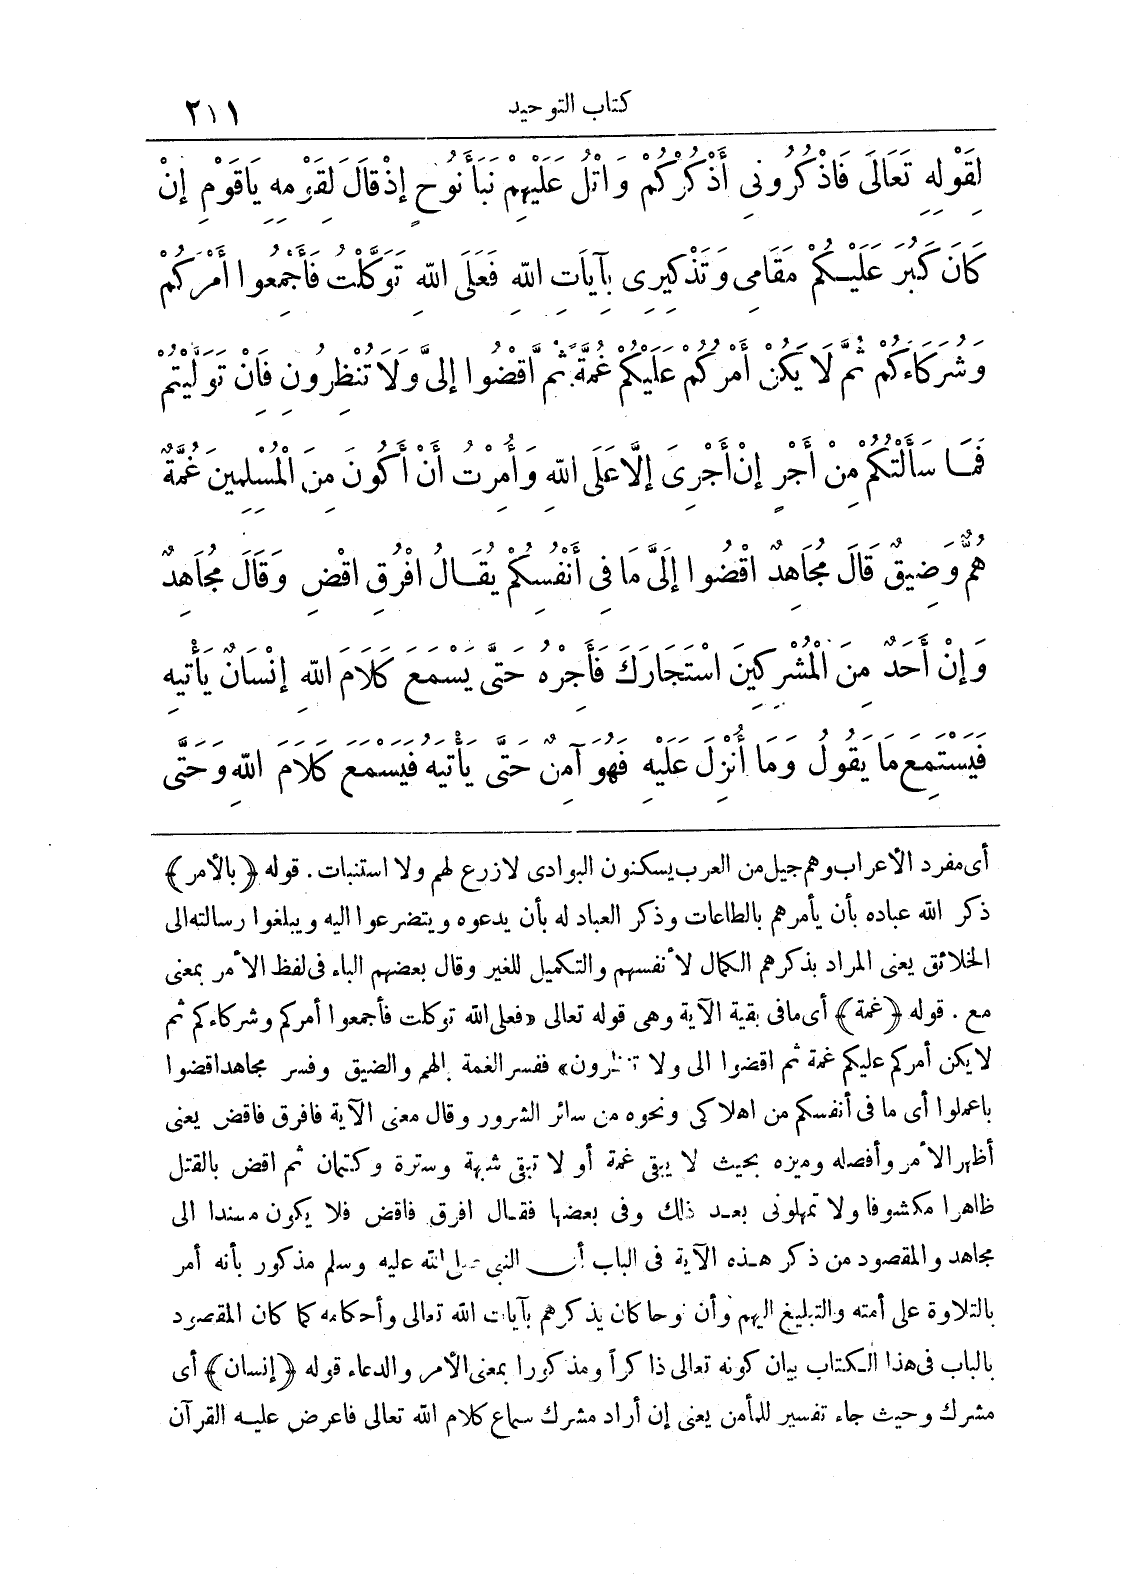 كتاب التوحيد ٢١١
لِقَوْلِهِ تَعَالَى فَاذْكُرُونِى أَذْكُرْكُمْ وَاتْلُ عَلَيْهِمْ نَبَأَ نُوحٍ إِذْ قَالَ لِقَوْمِهِ يَاقَوْمِ إِنْ
كَانَ كَبُرَ عَلَيْكُمْ مَقَامِى وَتَذْكِيرِى بِآيَاتِ اللهِ فَعَلَى اللهِ تَوَكَّلْتُ فَأَجْمِعُوا أَمْرَكُمْ
وَشُرَكَاءَكُمْ ثُمَّ لَا يَكُنْ أَمْرُكُمْ عَلَيْكُمْ غُمَّةً ثُمَّ اقْضُوا إِلَىَّ وَلَا تُنْظِرُونِ فَإِنْ تَوَلَّيْتُمْ
فَمَا سَأَلْتُكُمْ مِنْ أَجْرٍ إِنْ أَجْرِىَ إِلَّا عَلَى اللهِ وَأُمِرْتُ أَنْ أَكُونَ مِنَ الْمُسْلِمِينَ غُمَّةٌ
هَمٌّ وَضِيقٌ قَالَ مُجَاهِدٌ اقْضُوا إِلَىَّ مَا فِى أَنْفُسِكُمْ يُقَالُ افْرُقِ اقْضِ وَقَالَ مُجَاهِدٌ
وَإِنْ أَحَدٌ مِنَ الْمُشْرِكِينَ اسْتَجَارَكَ فَأَجِرْهُ حَتَّى يَسْمَعَ كَلَامَ اللهِ إِنْسَانٌ يَأْتِيهِ
فَيَسْتَمِعُ مَا يَقُولُ وَمَا أُنْزِلَ عَلَيْهِ فَهُوَ آمِنٌ حَتَّى يَأْتِيَهُ فَيَسْمَعَ كَلَامَ اللهِ وَحَتَّى
أى مفرد الأعراب وهم جيل من العرب يسكنون البوادى لا زرع لهم ولا استنبات . قوله ﴿بالأمر﴾
ذكر الله عباده بأن يأمرهم بالطاعات وذكر العباد له بأن يدعوه ويتضرعوا اليه ويبلغوا رسالته الى
الخلائق يعنى المراد بذكرهم الكمال لأنفسهم والتكميل للغير وقال بعضهم الباء فى لفظ الأمر بمعنى
مع . قوله ﴿غمة﴾ أى مافى بقية الآية وهى قوله تعالى «فعلى الله توكلت فأجمعوا أمركم وشركاءكم ثم
لا يكن أمركم عليكم غمة ثم اقضوا الى ولا تنظرون» ففسر الغمة بالهم والضيق وفسر مجاهد اقضوا
باعملوا أى ما فى أنفسكم من اهلاكى ونحوه من سائر الشرور وقال معنى الآية فافرق فاقض يعنى
أظهر الأمر وأفصله وميزه بحيث لا يبقى غمة أو لا تبقى شبهة وسترة وكتمان ثم اقض بالقتل
ظاهرا مكشوفا ولا تمهلونى بعد ذلك وفى بعضها فقال افرق فاقض فلا يكون مسندا الى
مجاهد والمقصود من ذكر هذه الآية فى الباب أن النبى صلى الله عليه وسلم مذكور بأنه أمر
بالتلاوة على أمته والتبليغ اليهم وأن نوحا كان يذكرهم بآيات الله تعالى وأحكامه كما كان المقصود
بالباب فى هذا الكتاب بيان كونه تعالى ذاكراً ومذكورا بمعنى الأمر والدعاء قوله ﴿إنسان﴾ أى
مشرك وحيث جاء تفسير للمأمن يعنى إن أراد مشرك سماع كلام الله تعالى فاعرض عليه القرآن